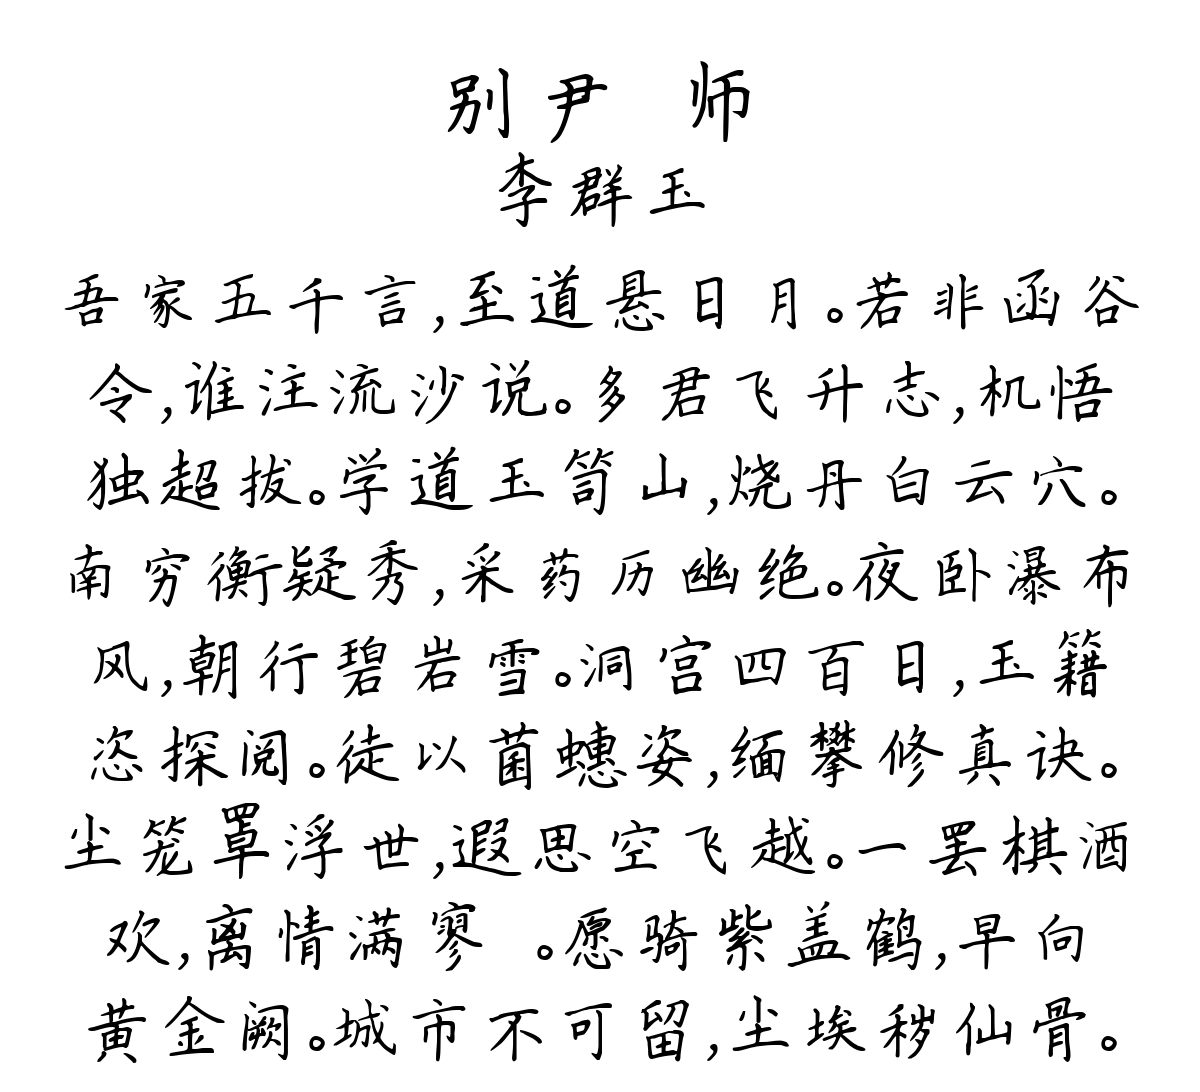 别尹 师
李群玉
吾家五千言,至道悬日月。若非函谷
令,谁注流沙说。多君飞升志,机悟
独超拔。学道玉笥山,烧丹白云穴。
南穷衡疑秀,采药历幽绝。夜卧瀑布
风,朝行碧岩雪。洞宫四百日,玉籍
恣探阅。徒以菌蟪姿,缅攀修真诀。
尘笼罩浮世,遐思空飞越。一罢棋酒
欢,离情满寥 。愿骑紫盖鹤,早向
黄金阙。城市不可留,尘埃秽仙骨。